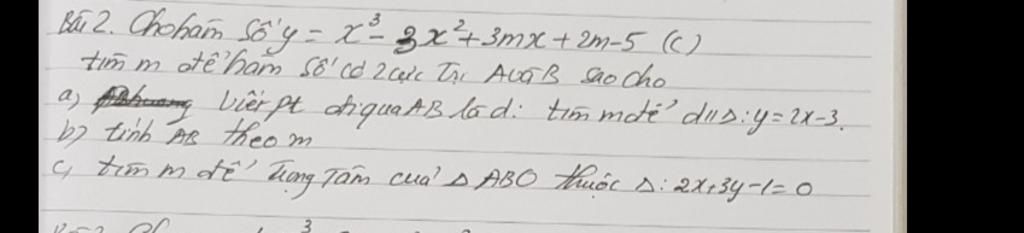 Bài 2. Cho hàm số y = x³ - 3x² + 3mx + 2m-5 (C)
tìm m để hàm số có 2 cực Trị A và B sao cho
a) viết pt đi qua AB là d: tìm m để d // Δ: y = 2x-3.
b) tính AB theo m
c, tìm m để Trọng Tâm của Δ ABO thuộc Δ: 2x+3y-1=0